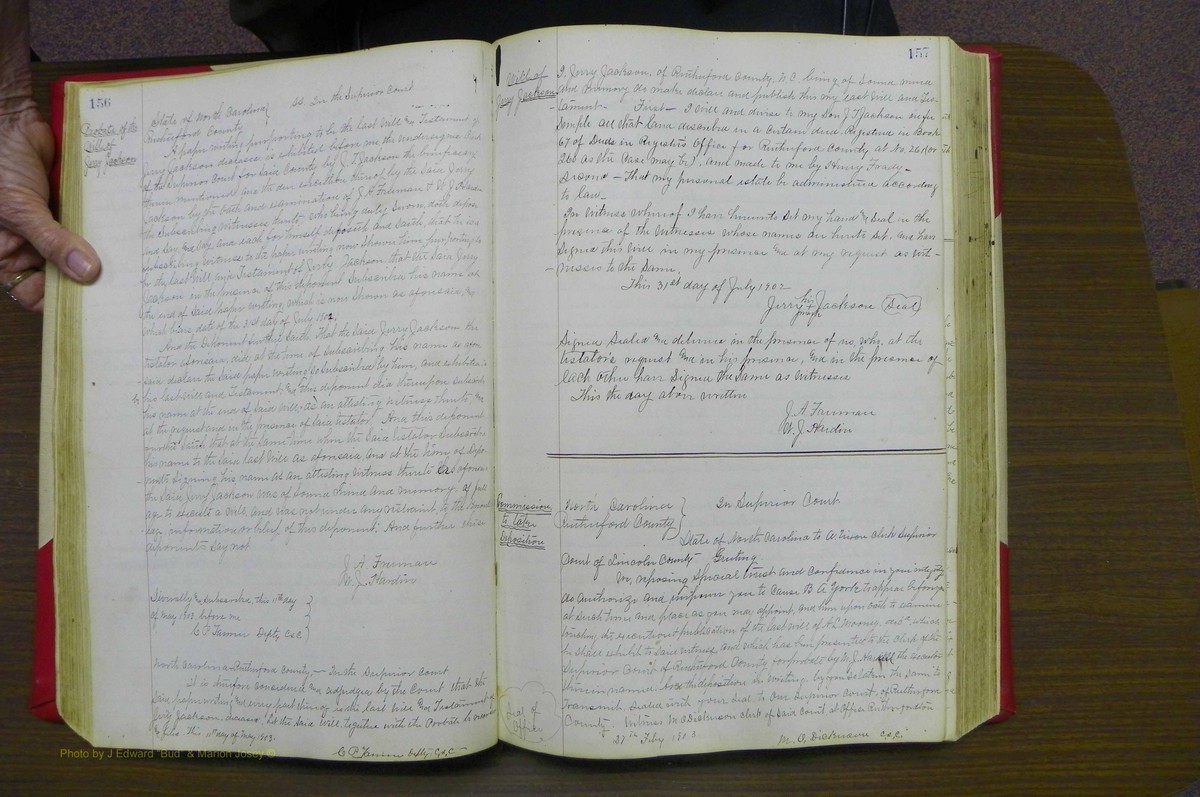 156
Probate of the
Will of
Jerry Jackson
State of North Carolina
Rutherford County
SS. In the Superior Court
A paper writing purporting to be the last Will & Testament of
Jerry Jackson deceased, is exhibited before me the undersigned Clerk
of the Superior Court for said County by J T Jackson the beneficiary
therein mentioned and the due execution thereof by the said Jerry
Jackson by the oath and examination of J. A Freeman & W J Hardin
the Subscribing Witnesses thereto, who being duly sworn, doth depose
and say, and each for himself deposeth and saith, that he is a
subscribing witness to the paper writing now shown him purporting to
be the last Will and Testament of Jerry Jackson, that the said Jerry
Jackson in the presence of this deponent subscribed his name at
the end of said paper writing, which is now shown as aforesaid, &
which bears date of the 31st day of July 1902.
And the deponent further saith, That the said Jerry Jackson the
testator aforesaid, did at the time of subscribing his name as afore-
said declare the said paper writing so subscribed by him, and exhibited
his last will and Testament, & this deponent did thereupon subscribe
his name at the end of said Will, as an attesting witness thereto, &
at the request and in the presence of said testator. And this deponent
further saith that at the same time when the said testator subscribed
his name to the said last Will as aforesaid and at the time of depo-
nents signing his name as an attesting witness thereto as afore-
the said Jerry Jackson was of sound mind and memory, of full
age to execute a will and was not under any restraint, to the knowl-
edge, information or belief of this deponent. And further these
deponents say not
J. A. Freeman
W. J. Hardin
Severally & Subscribed, this day
of May 1903, before me
C F Depty C.S.C.
North Carolina - Rutherford County, - In the Superior Court
it is therefore considered & adjudged by the Court that the
said paper writing & every part thereof is the last Will & Testament of
Jerry Jackson, deceased, let the said Will, together with the Probate be recorded
& filed This day of May 1903.
C F Depty C.S.C.
157
Will of
Jerry Jackson
I, Jerry Jackson, of Rutherford County, N.C. being of sound mind
and memory do make declare and publish this my last Will and Tes-
tament. First - I will and devise to my son J T Jackson in fee
Simple all that land described in a certain deed Registered in Book
67 of Deeds in Registers Office for Rutherford County, at No. 261 (or
260 as the case may be). And made to me by Henry Toady -
Second - That my personal estate be administered according
to law -
In Witness whereof I have hereunto set my hand & Seal in the
presence of the Witnesses whose names are hereto set, and have
signed this Will in my presence and at my request as wit-
nesses to the same.
This 31st day of July 1902
Jerry his X mark Jackson (Seal)
Signed Sealed and delivered in the presence of us, who, at the
testator's request and in his presence, and in the presence of
each other have signed the same as witnesses
This the day above written
J. A Freeman
W. J. Hardin
Commission
to take
Deposition
North Carolina
Rutherford County
In Superior Court
State of North Carolina to A. Nixon Clerk Superior
Court of Lincoln County Greeting.
We, reposing Special trust and confidence in your integrity
do authorize and empower you to cause B A York to appear before you
at such time and place as you may appoint, and him upon oath to examine
touching the execution & publication of the last will of A C Mooney, decd, which
he shall exhibit to said witness and which has been presented to the Clerk of the
Superior Court of Rutherford County for probate by W. J. the executor
therein named. And the deposition in writing by you so taken the same, to
transmit, sealed with your seal to our Superior Court of Rutherford
County. Witness M O Dickerson clerk of said court at office Rutherfordton
27th Feby 1903
M. O. Dickerson C.S.C.
Seal of
Office
Photo by J Edward "Bud" & Marion Josey ©